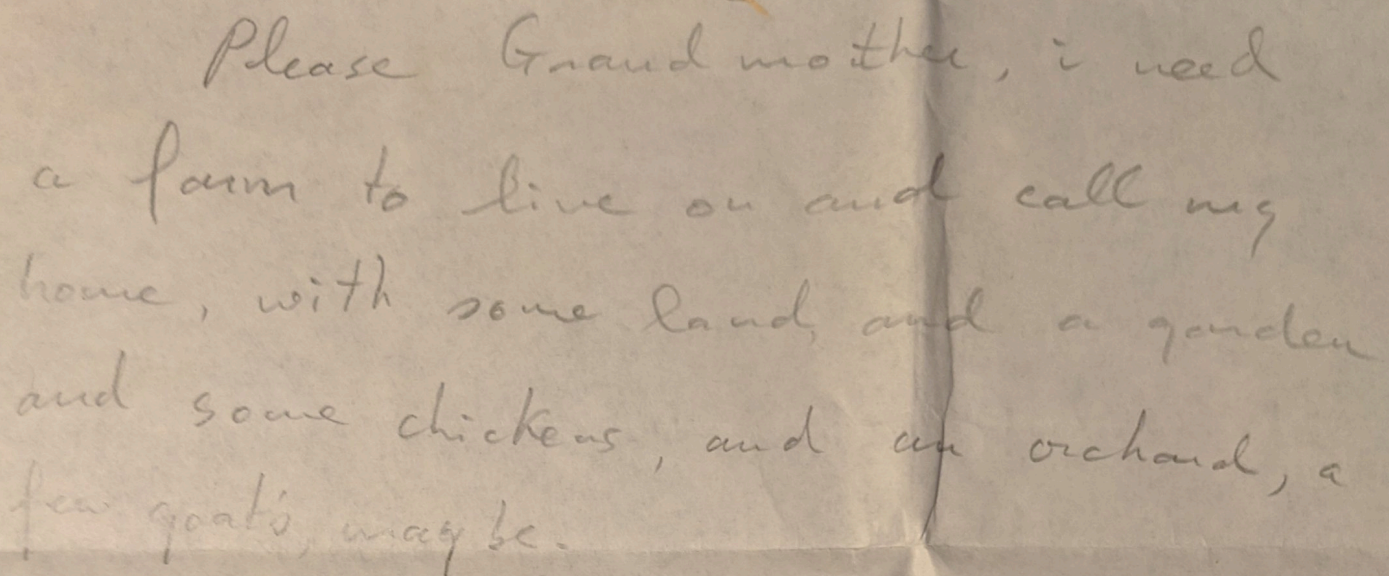 Please Grandmother, i need
a farm to live on and call my
home, with some land, and a garden
and some chickens, and an orchard, a
few goats, maybe.